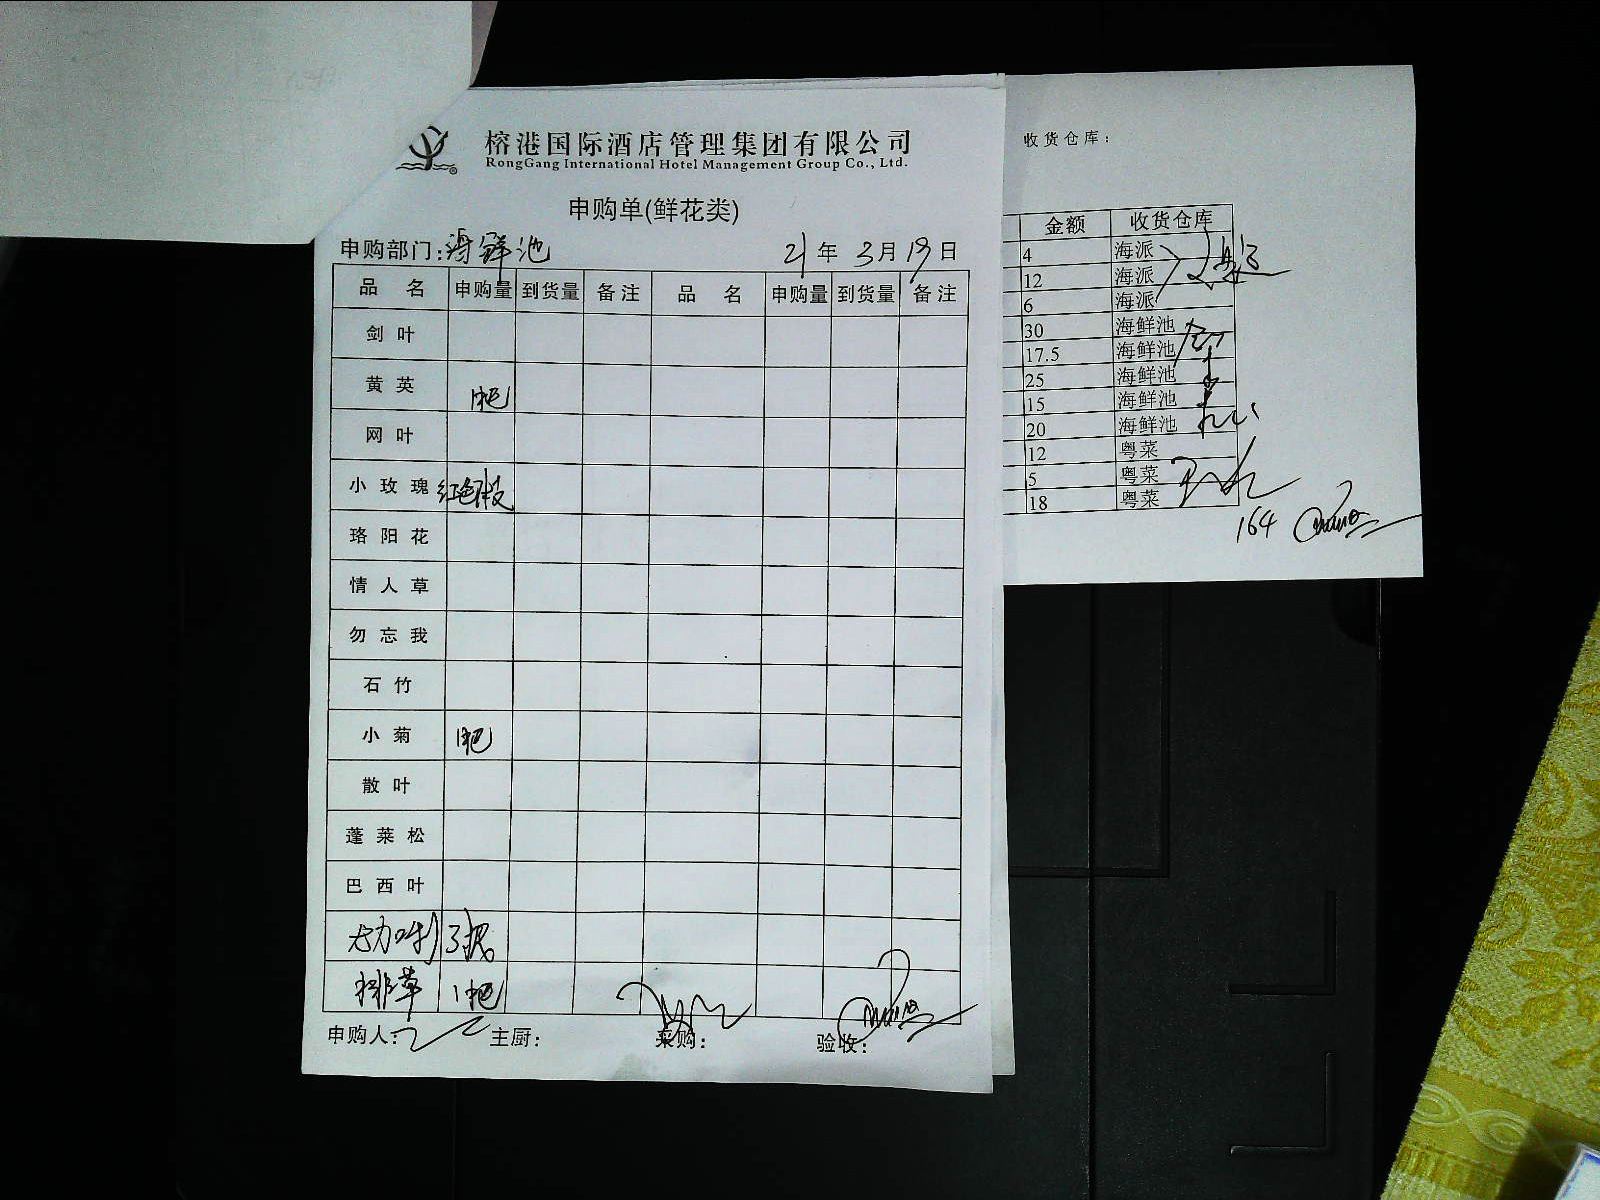 榕港国际酒店管理集团有限公司
RongGang International Hotel Management Group Co., Ltd.
申购单(鲜花类)
申购部门:海鲜池 21年3月19日
品名 申购量 到货量 备注 品名 申购量 到货量 备注
剑叶
黄英 1把
网叶
小玫瑰 红色
珞阳花
情人草
勿忘我
石竹
小菊 1把
散叶
蓬莱松
巴西叶
3把
排草 1把
申购人: 主厨: 采购: 验收:
收货仓库:
金额 收货仓库
4 海派
12 海派
6 海派
30 海鲜池
17.5 海鲜池
25 海鲜池
15 海鲜池
20 海鲜池
12 粤菜
5 粤菜
18 粤菜
164